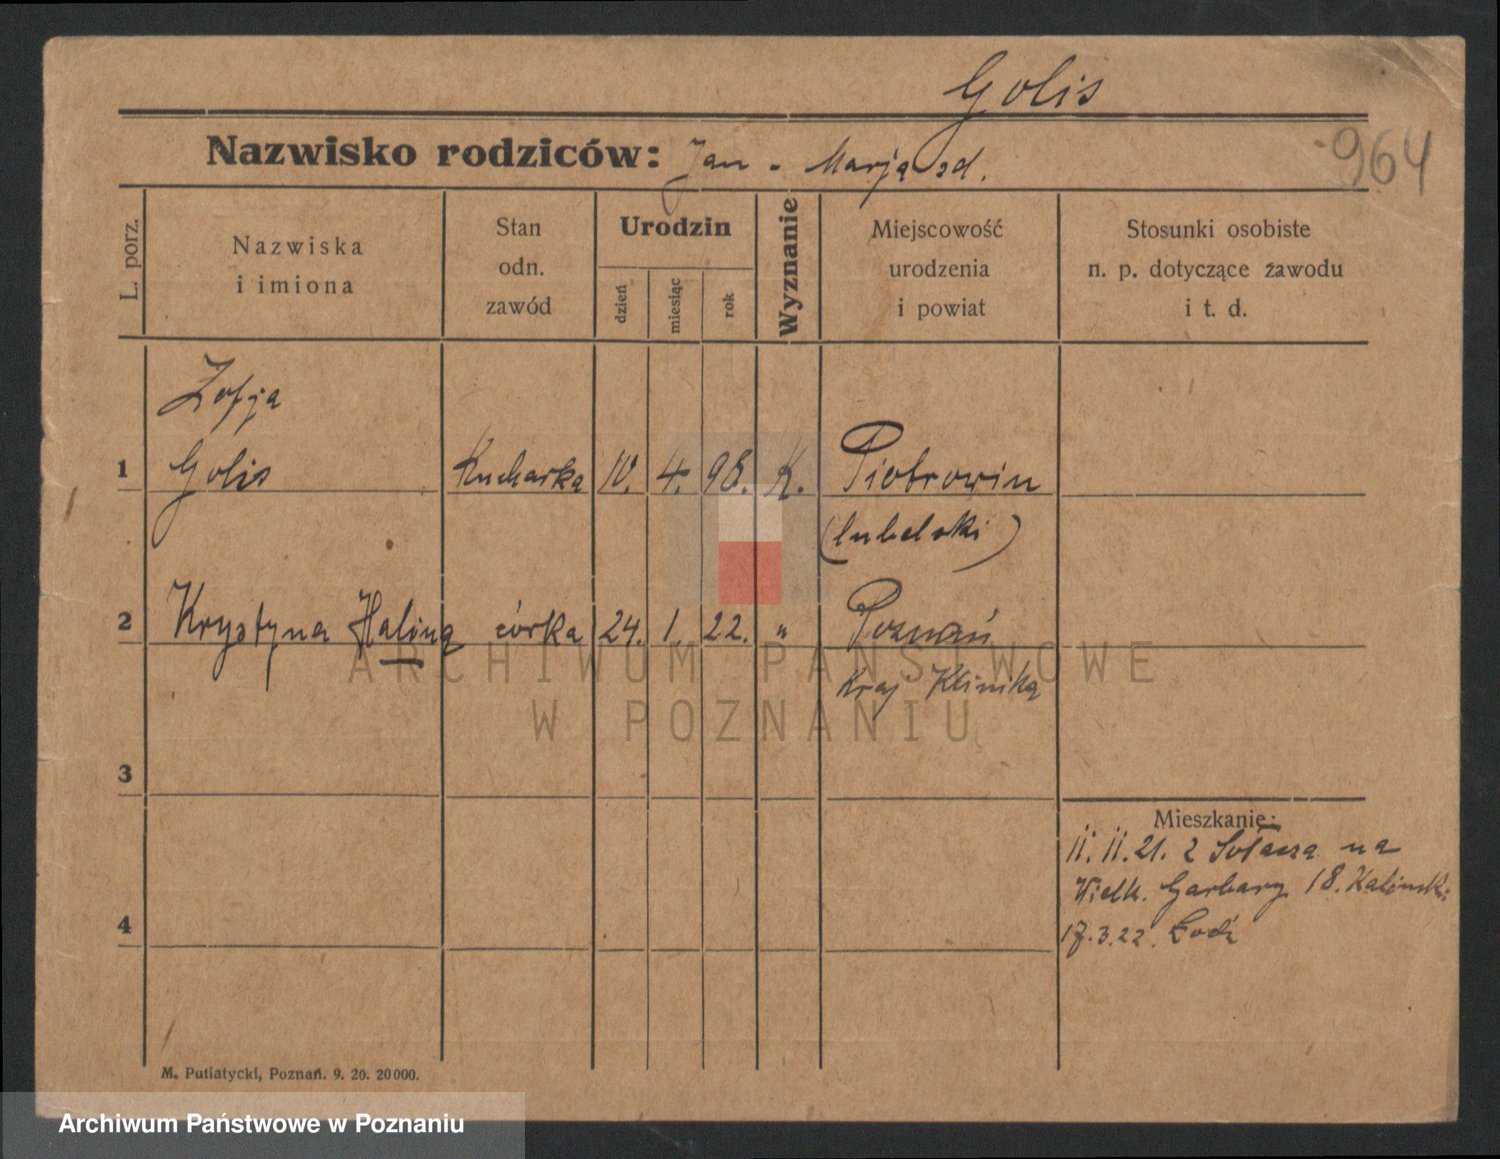 Golis
964
Nazwisko rodziców: Jan - Marja zd.
L. porz.
Nazwiska
i imiona
Stan
odn.
zawód
Urodzin
dzień
miesiąc
rok
Wyznanie
Miejscowość
urodzenia
i powiat
Stosunki osobiste
n. p. dotyczące zawodu
i t. d.
Zofja
1 Golis Kucharka 10. 4. 98. K. Piotrowin
(lubelski)
2 Krystyna Halina córka 24. 1. 22. " Poznań
Kraj Klinika
3
Mieszkanie:
11. 11. 21. z Sołacza na
Wielk. Garbary 18. Kalinski
4
17.3.22. Łodź
M. Putiatycki, Poznań. 9. 20. 20000.
ARCHIWUM PAŃSTWOWE
W POZNANIU
Archiwum Państwowe w Poznaniu